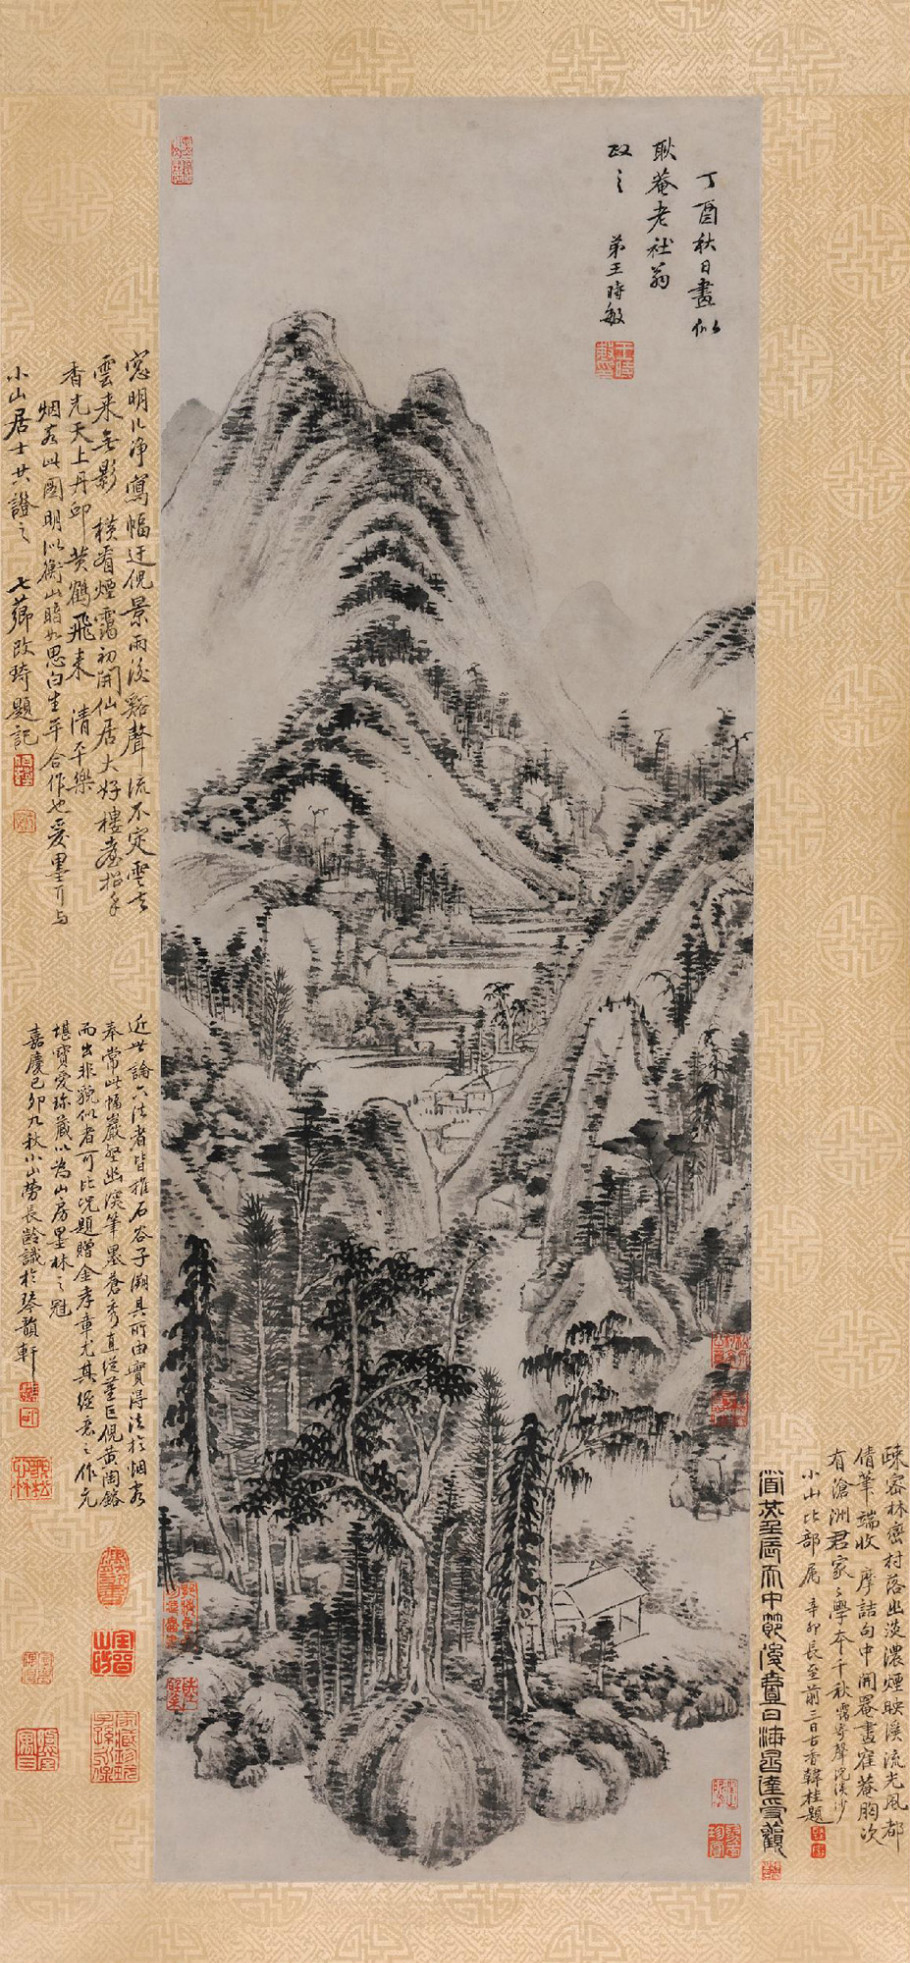 丁酉秋日畫似
耿菴老社翁
政之
弟王時敏
窓明几净寫幅迂倪景雨後谿聲流不定雲去
雲来無影 模看煙靄初開仙居大好樓臺招手
香光天上丹邱黄鶴飛来 清平樂
烟客此圖明似衡山暗如思白生平合作也爰墨丁与
小山居士共證之 七薌改琦題記
近世論六法者皆推石谷子溯其所由實得法於烟客
奉常此幅巖壑幽深筆墨蒼秀直從董巨倪黄陶鎔
而出非貌似者可比况題贈金孝章尤其經意之作尤
堪寶愛珍藏以為山房墨林之冠
嘉慶己卯九秋小山勞長齡識於琴韻軒
疎密林巒村落幽淡濃煙映溪流光風都
倩筆端收 摩詰句中開罨畫窪菴胸次
有滄洲君家家學本千秋 靄寄聲浣溪沙
小山比部属 辛卯長至前三日古香韓桂題
後學日海昌達受觀